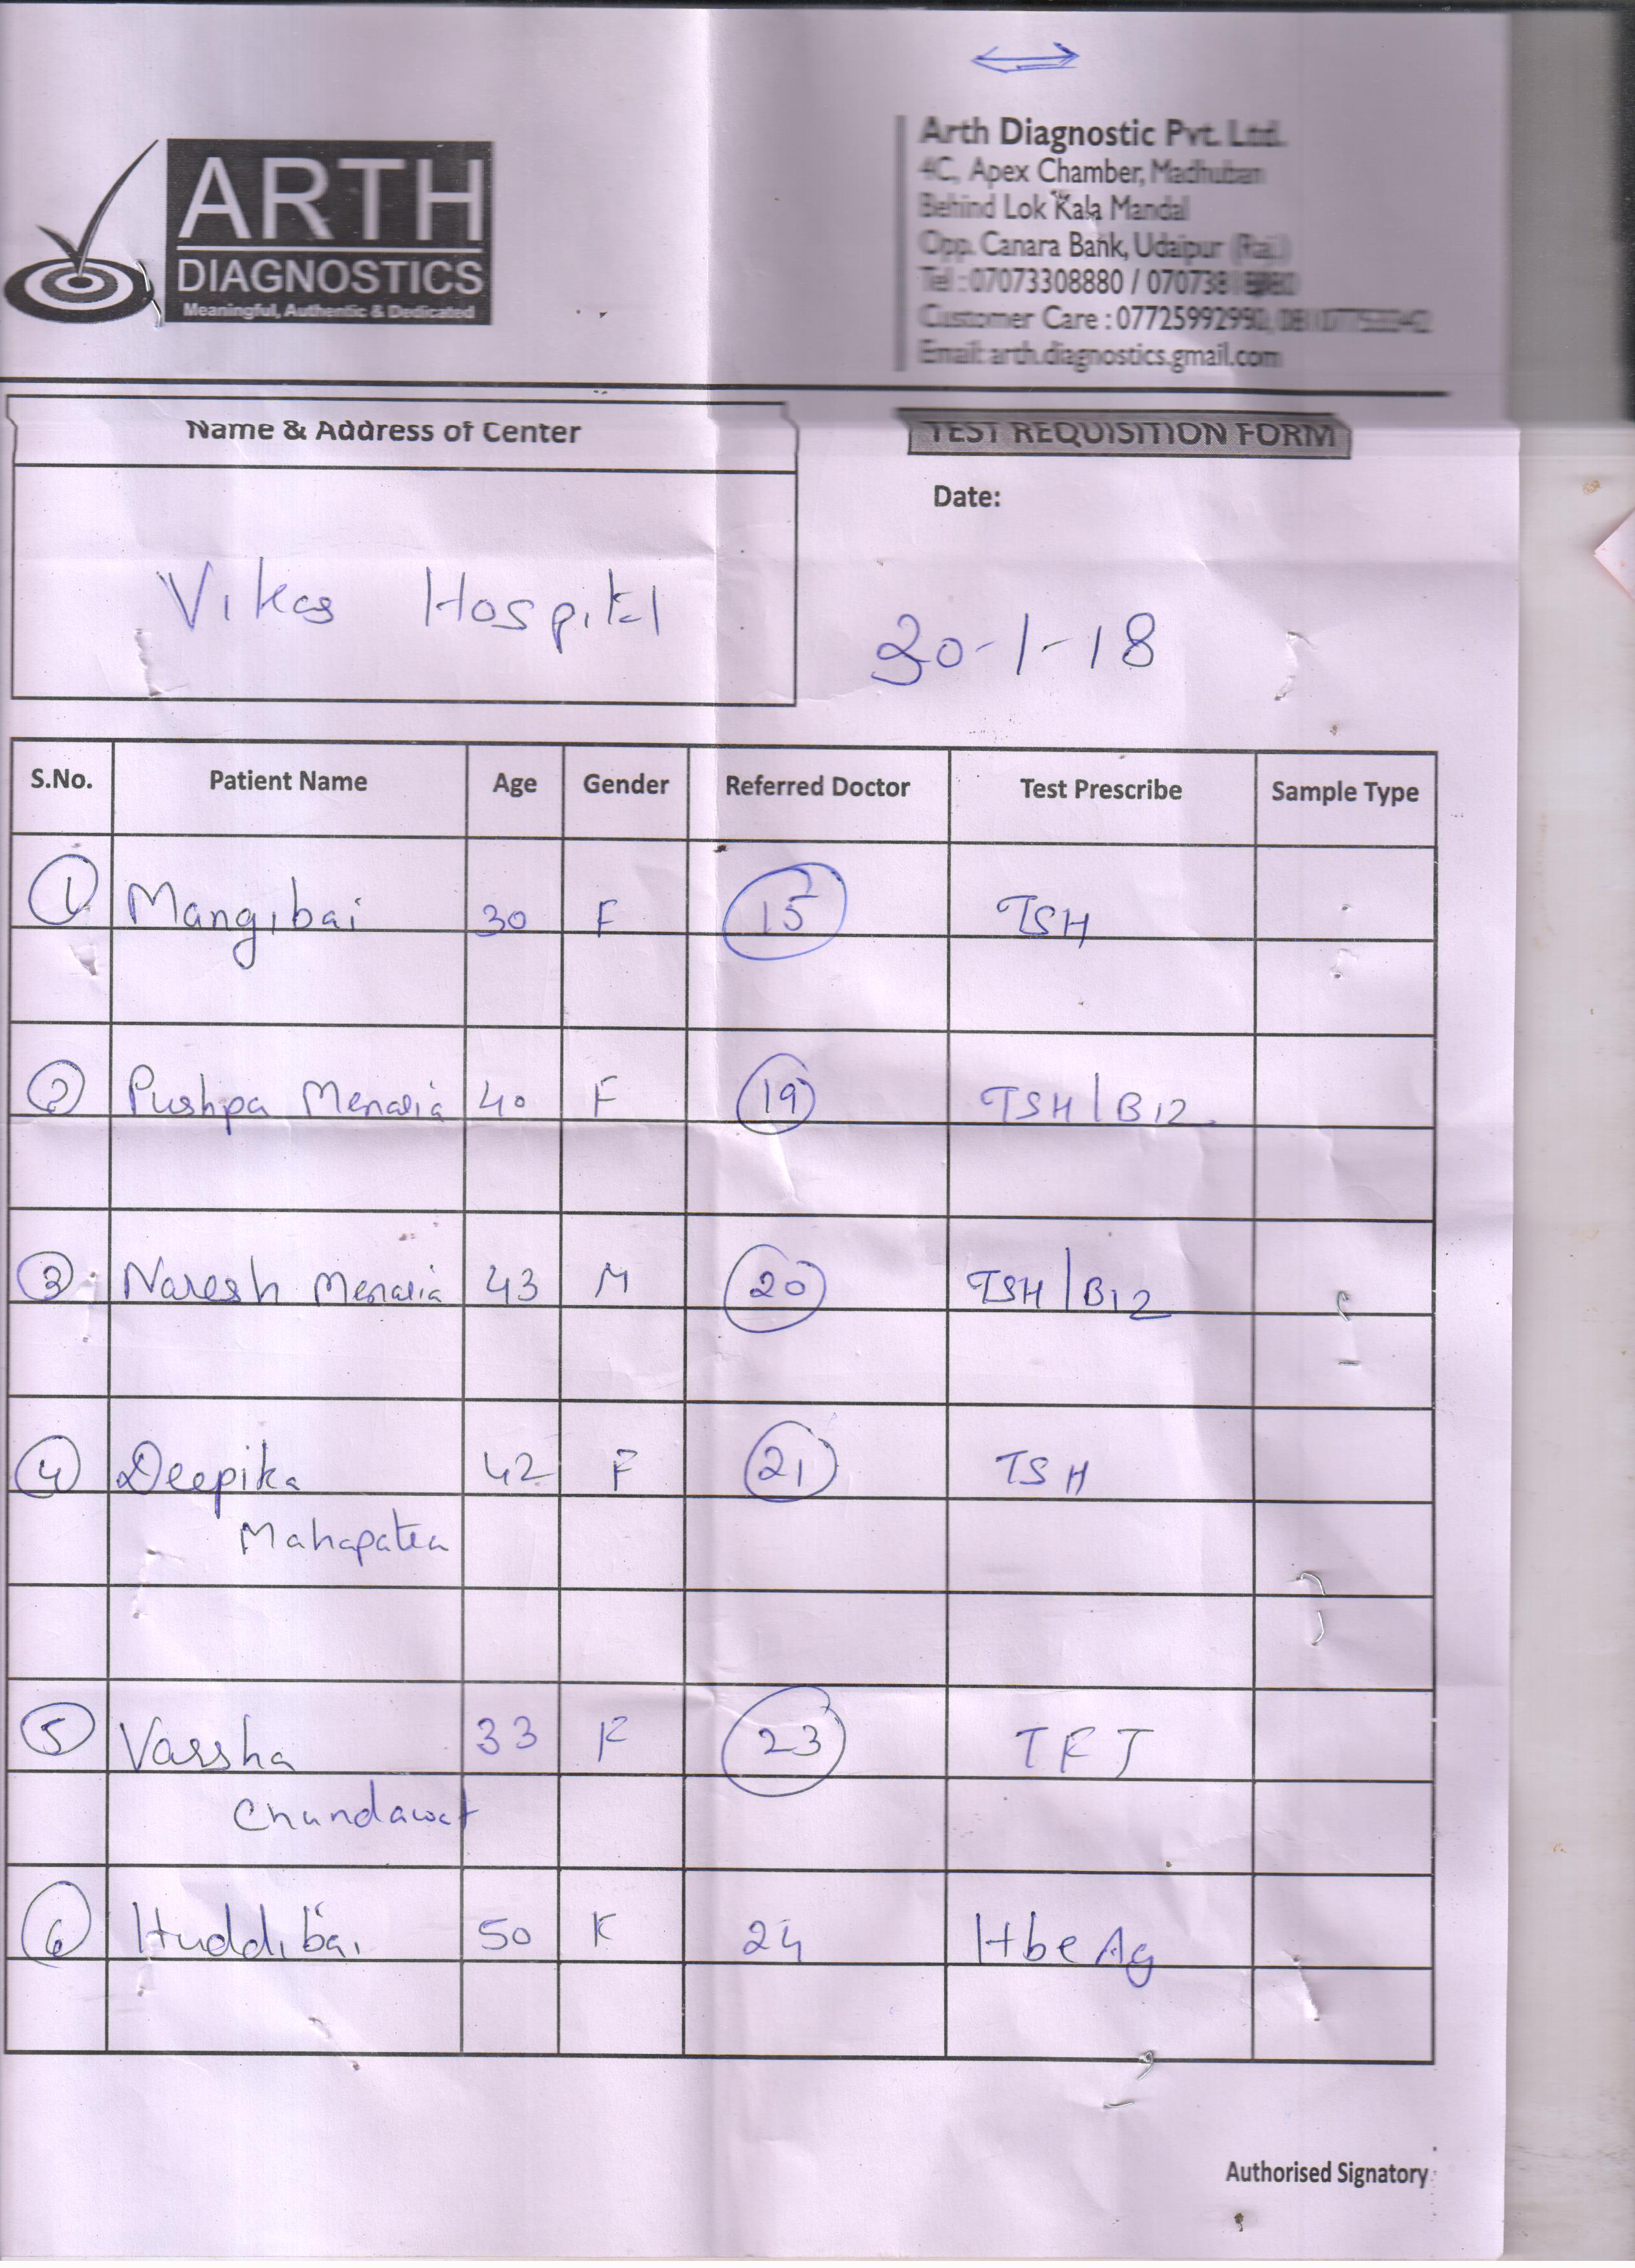 ARTH
DIAGNOSTICS
Meaningful, Authentic & Dedicated
Arth Diagnostic Pvt. Ltd.
4C, Apex Chamber, Madhuban
Behind Lok Kala Mandal
Opp. Canara Bank, Udaipur (Raj.)
Tel : 07073308880 /
Customer Care :
Email: arth.diagnostics.gmail.com
Name & Address of Center
TEST REQUISITION FORM
Date:
Vikas Hospital
30-1-18
S.No. Patient Name Age Gender Referred Doctor Test Prescribe Sample Type
1 Mangibai 30 F 15 TSH
2 Pushpa Menaria 40 F 19 TSH/B12
3 Naresh Menaria 43 M 20 TSH/B12
4 Deepika 42 F 21 TSH
Mahapatra
5 Varsha 33 F 23 TFT
Chundawat
6 Huddibai 50 F 24 HbeAg
Authorised Signatory